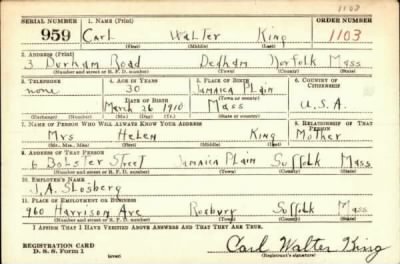 1103
SERIAL NUMBER 1. NAME (Print) ORDER NUMBER
959 Carl Walter King 1103
(First) (Middle) (Last)
2. ADDRESS (Print)
3 Durham Road Dedham Norfolk Mass
(Number and street or R. F. D. number) (Town) (County) (State)
3. TELEPHONE 4. AGE IN YEARS 5. PLACE OF BIRTH 6. COUNTRY OF CITIZENSHIP
none 30 Jamaica Plain
DATE OF BIRTH (Town or county)
March 26 1910 Mass U.S.A.
(Exchange) (Number) (Mo.) (Day) (Yr.) (State or country)
7. NAME OF PERSON WHO WILL ALWAYS KNOW YOUR ADDRESS 8. RELATIONSHIP OF THAT PERSON
Mrs Helen King Mother
(Mr., Mrs., Miss) (First) (Middle) (Last)
9. ADDRESS OF THAT PERSON
6 Bolster Street Jamaica Plain Suffolk Mass
(Number and street or R. F. D. number) (Town) (County) (State)
10. EMPLOYER'S NAME
J.A. Slosberg
11. PLACE OF EMPLOYMENT OR BUSINESS
960 Harrison Ave Roxbury Suffolk Mass
(Number and street or R. F. D. number) (Town) (County) (State)
I AFFIRM THAT I HAVE VERIFIED ABOVE ANSWERS AND THAT THEY ARE TRUE.
REGISTRATION CARD
D. S. S. Form 1 (over) Carl Walter King
(Registrant's signature)